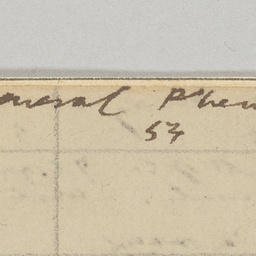 eneral Phen
54